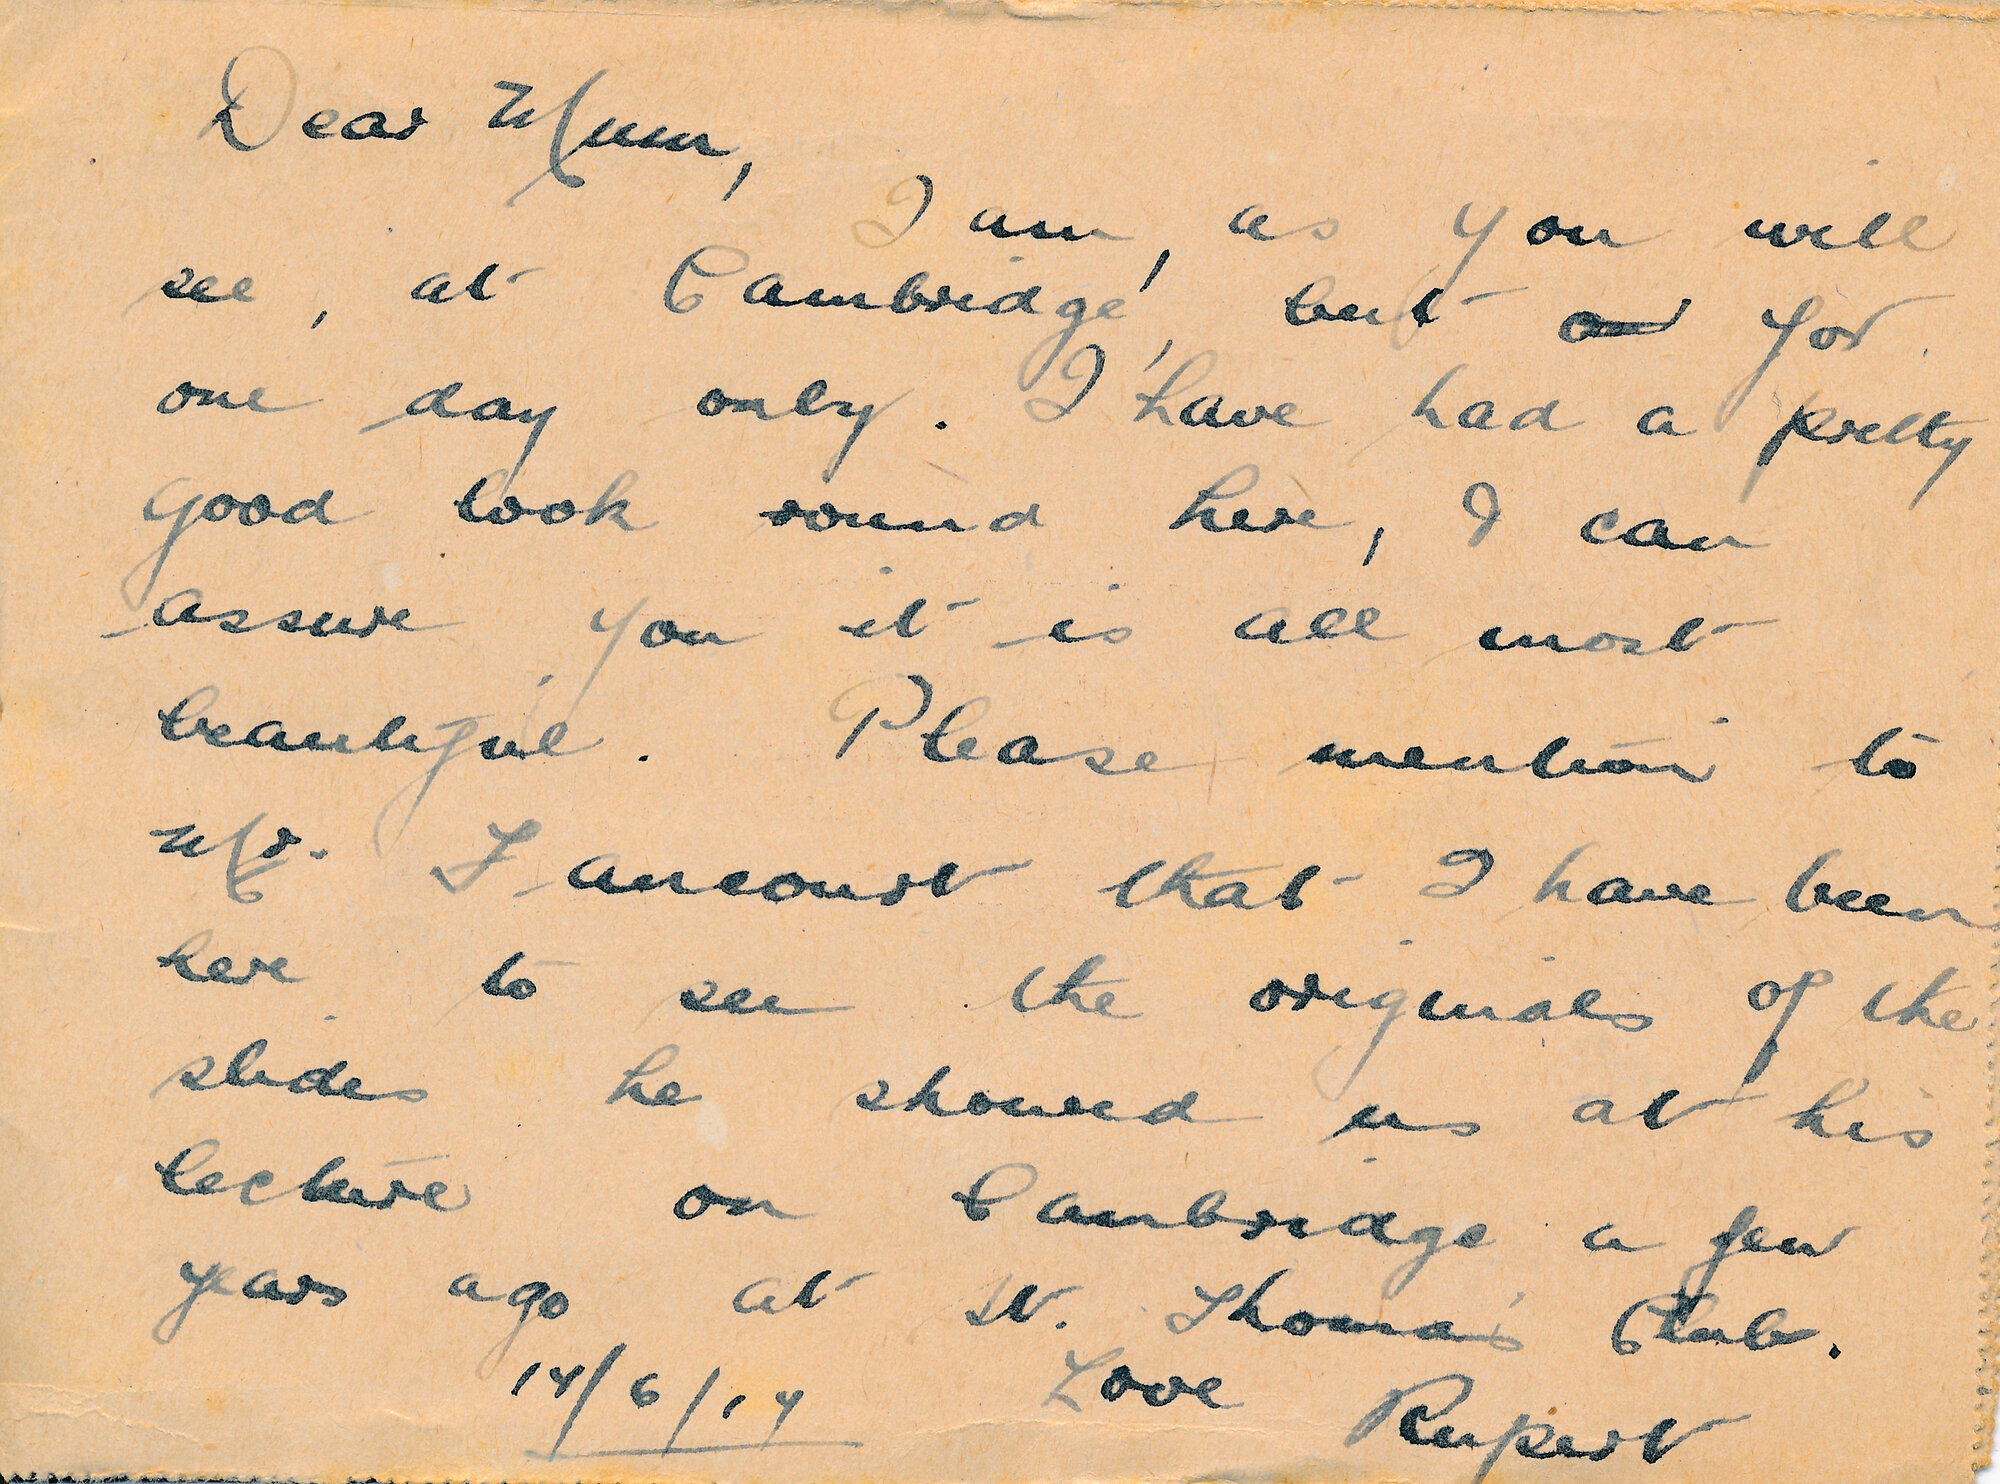 Dear Mum,
I am, as you will
see, at Cambridge, but for
one day only. I have had a pretty
good look round here, I can
assure you it is all most
beautiful. Please mention to
Mr. Fancourt that I have been
here to see the originals of the
slides he showed us at his
lecture on Cambridge a few
years ago at St. Thomas's Club.
14/6/14 Love Rupert